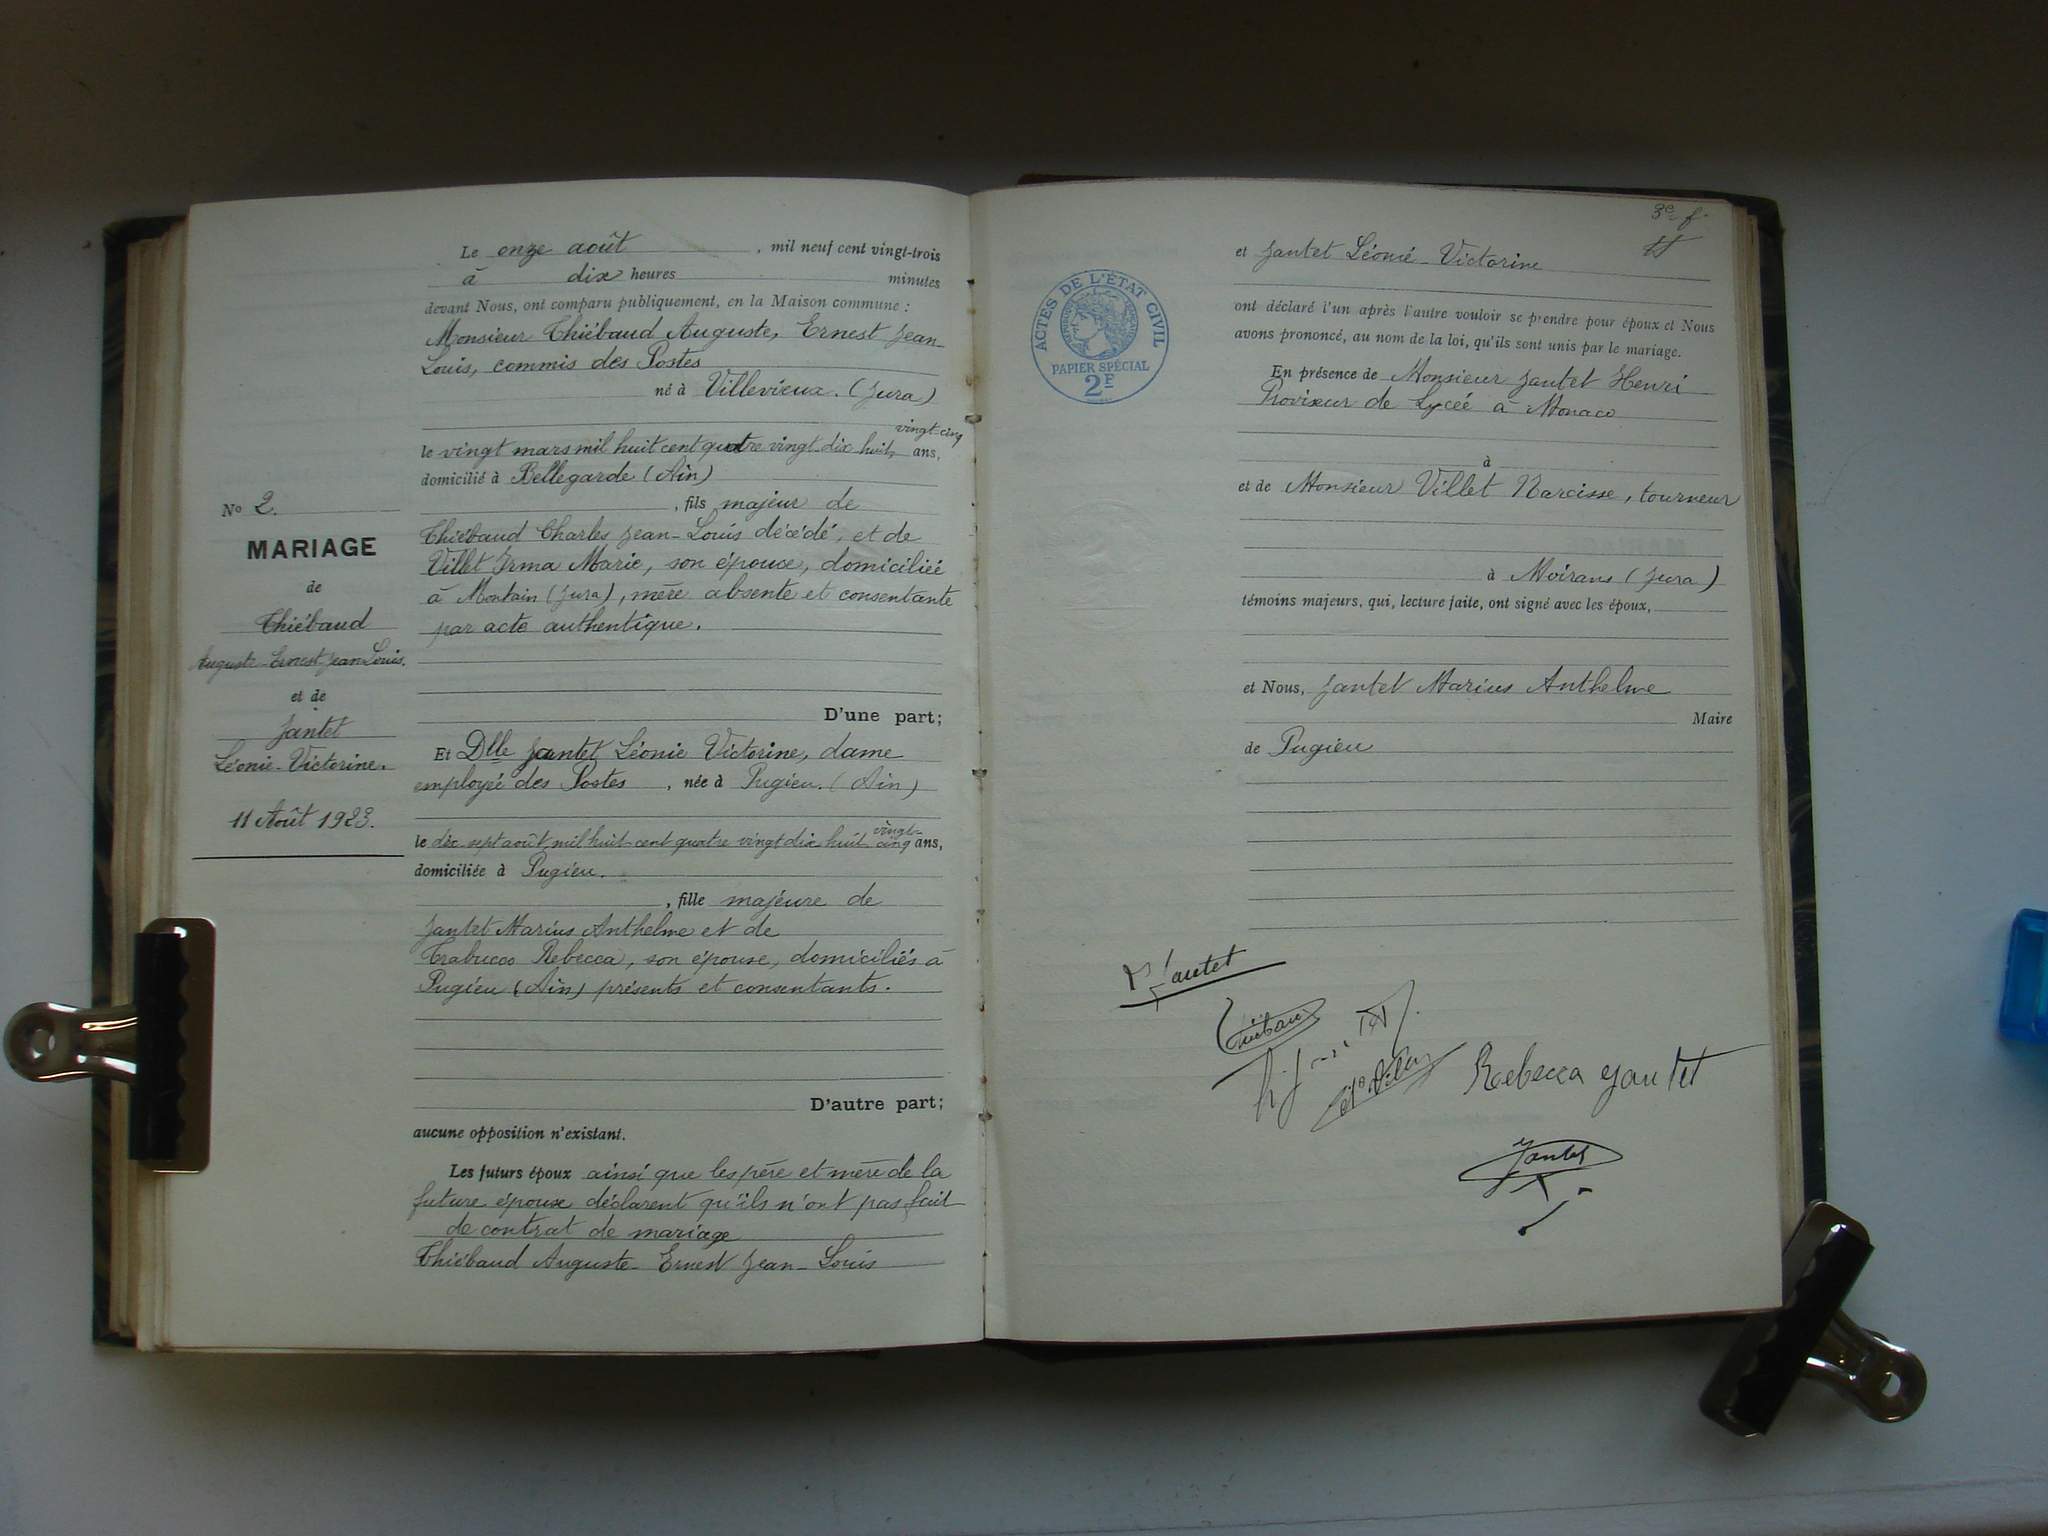 Le onze août, mil neuf cent vingt-trois
à dix heures minutes
devant Nous, ont comparu publiquement, en la Maison commune :
Monsieur Thiébaud Auguste, Ernest Jean-
Louis, commis des Postes
né à Villevieux. (Jura)
vingt-cinq
le vingt mars mil huit cent quatre vingt dix huit, ans,
domicilié à Bellegarde (Ain)
, fils majeur de
Thiébaud Charles Jean-Louis décédé, et de
Villet Irma Marie, son épouse, domiciliée
à Montain (Jura), mère absente et consentante
par acte authentique.
D'une part;
Et Dlle Jantet Léonie Victorine, dame
employée des Postes, née à Pugieu. (Ain)
vingt-
le dix sept août mil huit cent quatre vingt dix huit cinq ans,
domiciliée à Pugieu.
, fille majeure de
Jantet Marius Anthelme et de
Trabucco Rebecca, son épouse, domiciliés à
Pugieu (Ain) présents et consentants.
D'autre part;
aucune opposition n'existant.
Les futurs époux ainsi que les père et mère de la
future épouse déclarent qu'ils n'ont pas fait
de contrat de mariage
Thiébaud Auguste-Ernest Jean-Louis
No 2.
MARIAGE
de
Thiébaud
Auguste-Ernest-Jean Louis.
et de
Jantet
Léonie-Victorine.
11 Août 1923.
3e f.
et Jantet Léonie Victorine
ACTES DE L'ÉTAT CIVIL
RÉPUBLIQUE FRANÇAISE
PAPIER SPÉCIAL
2F
ont déclaré l'un après l'autre vouloir se prendre pour époux et Nous
avons prononcé, au nom de la loi, qu'ils sont unis par le mariage.
En présence de Monsieur Jantet Henri
Proviseur de Lycée à Monaco
à
et de Monsieur Villet Narcisse, tourneur
à Moirans (Jura)
témoins majeurs, qui, lecture faite, ont signé avec les époux,
et Nous, Jantet Marius Anthelme
Maire
de Pugieu
Jantet
Thiébaud
Rebecca Jantet
Jantet